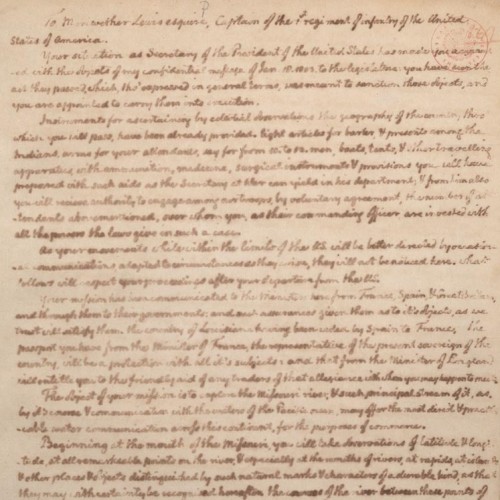 To Meriwether Lewis esquire, Captain of the 1st regiment of infantry of the United
States of America.
Your situation as Secretary of the President of the United States has made you acquaint-
ed with the objects of my confidential message of Jan. 18. 1803. to the legislature. you have seen the
act they passed, which, tho' expressed in general terms, was meant to sanction those objects, and
you are appointed to carry them into execution.
Instruments for ascertaining by celestial observations the geography of the country, thro'
which you will pass, have been already provided. light articles for barter, & presents among the
Indians, arms for your attendants, say for from 10 to 12 men, boats, tents, & other travelling
apparatus, with ammunition, medicine, surgical instruments & provisions you will have
prepared with such aids as the Secretary at War can yield in his department; & from him also
you will recieve authority to engage among our troops, by voluntary agreement, the number of at-
tendants above mentioned, over whom you, as their commanding officer are invested with
all the powers the laws give in such a case.
As your movements while within the limits of the US. will be better directed by occasion-
al communications, adapted to circumstances as they arise, they will not be noticed here. what
follows will respect your proceedings after your departure from the US.
Your mission has been communicated to the Ministers here from France, Spain, & Great Britain,
and through them to their governments; and such assurances given them as to it's objects, as we
trust will satisfy them. the country of Louisiana having been ceded by Spain to France, the
passport you have from the Minister of France, the representative of the present sovereign of the
country, will be a protection with all it's subjects; and that from the Minister of England
will entitle you to the friendly aid of any traders of that allegiance with whom you may happen to meet.
The object of your mission is to explore the Missouri river, & such principal stream of it, as,
by it's course & communication with the waters of the Pacific ocean, may offer the most direct & practi-
cable water communication across this continent, for the purposes of commerce.
Beginning at the mouth of the Missouri, you will take observations of latitude & longi-
tude, at all remarkeable points on the river, & especially at the mouths of rivers, at rapids, at islands
& other places & objects distinguished by such natural marks & characters of a durable kind, as that
they may with certainty be recognised hereafter. the courses of the river between these points of